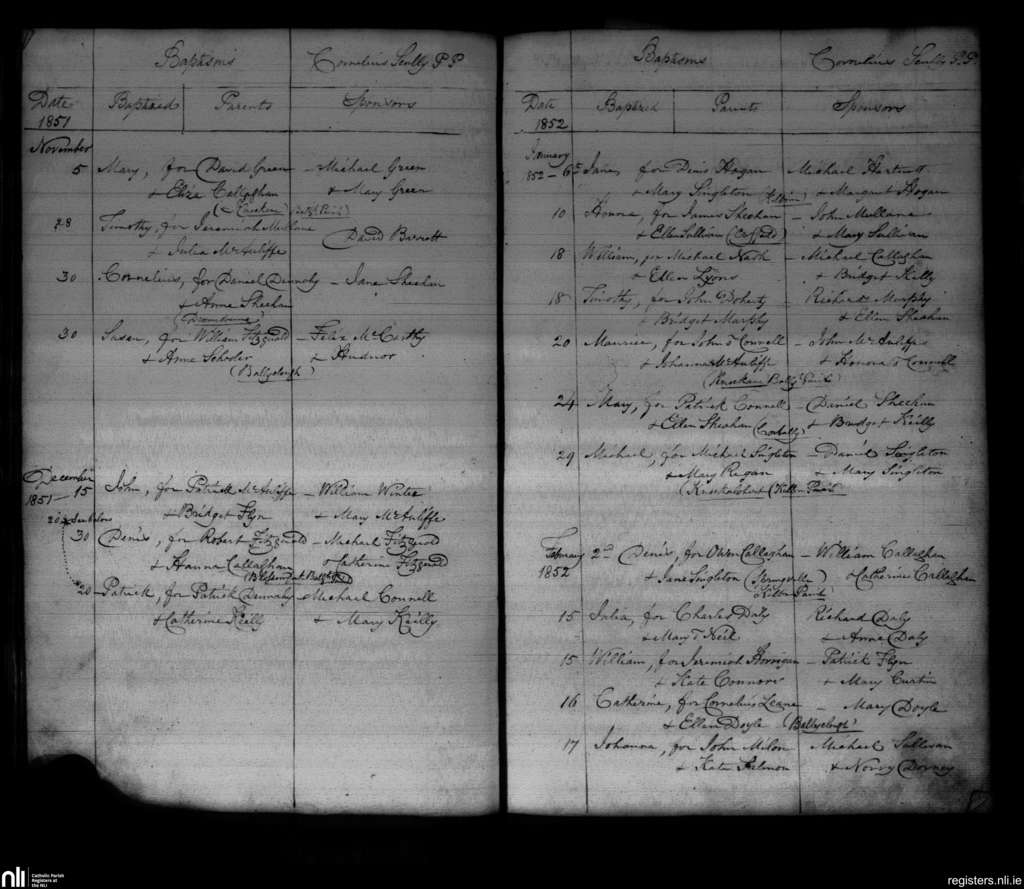 Baptisms Cornelius Scully P.P
Date Baptized Parents Sponsors
1851
November
5 Mary, for David Green – Michael Green
& Eliza Callaghan & Mary Green
28 Timothy, for Jeremiah
& Julia McAuliffe David Barrett
30 Cornelius, for Daniel Dennehy – Jane Sheehan
& Anne Sheehan
30 Susan, for William Fitzgerald – Felix McCarthy
& Anne &
(Ballyclough)
December
1851 – 15 John, for Patrick McAuliffe – William Winter
& Bridget Flyn & Mary McAuliffe
20 See below
30 Denis, for Robert Fitzgerald – Michael Fitzgerald
& Hanna Callaghan & Catherine Fitzgerald
20 Patrick, for Patrick Dennehy – Michael Connell
& Catherine Kielly & Mary Kielly
Baptisms Cornelius Scully P.P.
Date Baptized Parents Sponsors
1852
January
1852 – 6th James for Denis Hogan Michael Hartnett
& Mary Singleton & Margaret Hogan
10 Honora, for James Sheehan – John Mullane
& Ellen Sullivan & Mary Sullivan
18 William, for Michael Nash – Michael Callaghan
& Ellen Lyons & Bridget Kielly
18 Timothy, for John Doherty – Richard Murphy
& Bridget Murphy & Ellen Sheehan
20 Maurice, for John O Connell – John McAuliffe
& Johanna McAuliffe & Honora O Connell
24 Mary, for Patrick Connell – Daniel Sheehan
& Ellen Sheehan & Bridget Kielly
29 Michael, for Michael Singleton – Daniel Singleton
& Mary Regan & Mary Singleton
February 2nd Denis, for Owen Callaghan – William Callaghan
1852 & Jane Singleton & Catherine Callaghan
15 Julia, for Charles Daly Richard Daly
& Mary O Neil & Anne Daly
15 William, for Jeremiah Horrigan – Patrick Flyn
& Kate Connors & Mary Curtin
16 Catherine, for Cornelius Leane – Mary Doyle
& Ellen Doyle (Ballyclough)
17 Johanna, for John Michael Sullivan
& Kate & Norry
nli Catholic Parish Registers at the NLI
registers.nli.ie